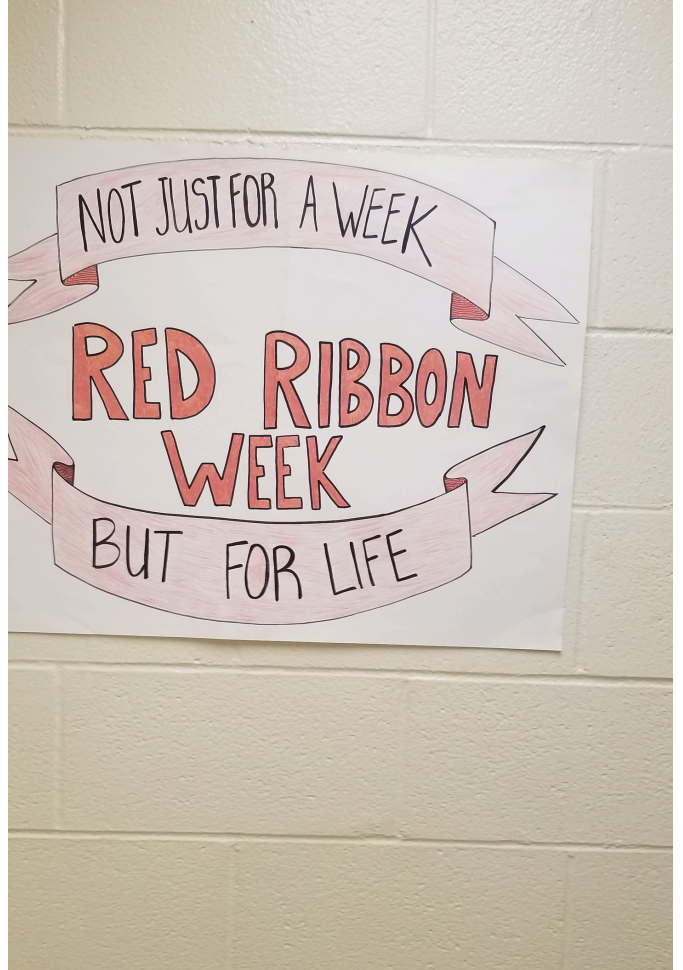 NOT JUST FOR A WEEK
RED RIBBON
WEEK
BUT FOR LIFE